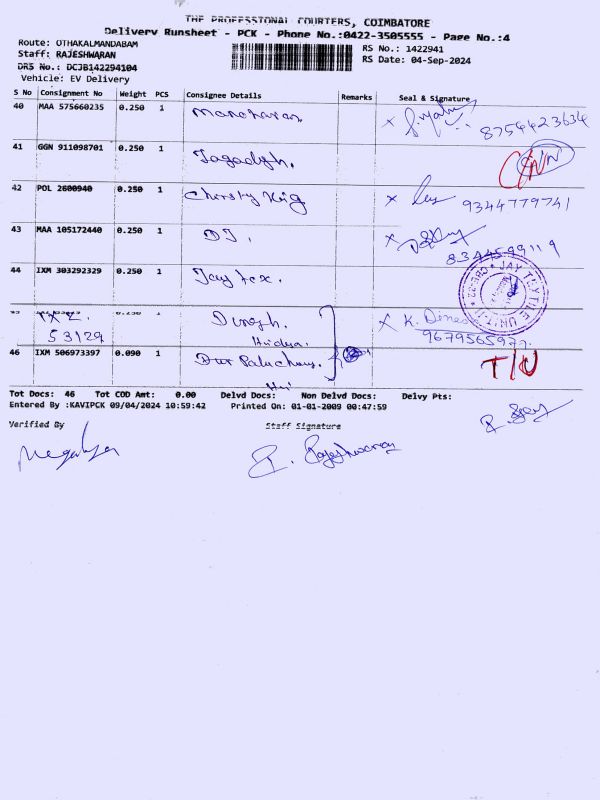 THE PROFESSIONAL COURIERS, COIMBATORE
Delivery Runsheet - PCK - Phone No.:0422-3505555 - Page No.:4
Route: OTHAKALMANDABAM
Staff: RAJESHWARAN
DRS No.: DCJB142294104
Vehicle: EV Delivery
RS No.: 1422941
RS Date: 04-Sep-2024
S No Consignment No Weight PCS Consignee Details Remarks Seal & Signature
40 MAA 575660235 0.250 1 Manoharan 8754423634
41 GGN 911098701 0.250 1 Jagadysh.
42 POL 2600940 0.250 1 Chirsty King 9344779741
43 MAA 105172440 0.250 1 DJ. 8344599119
44 IXM 303292329 0.250 1 Jay tex.
JAY TEXTILE UNIT-II
45 0.250 1 Dinesh. K. Dinesh
53129 9679565977
46 IXM 506973397 0.090 1
T/U
Tot Docs: 46 Tot COD Amt: 0.00 Delvd Docs: Non Delvd Docs: Delvy Pts:
Entered By :KAVIPCK 09/04/2024 10:59:42 Printed On: 01-01-2009 00:47:59
Verified By Staff Signature
R. Rajeshwaran